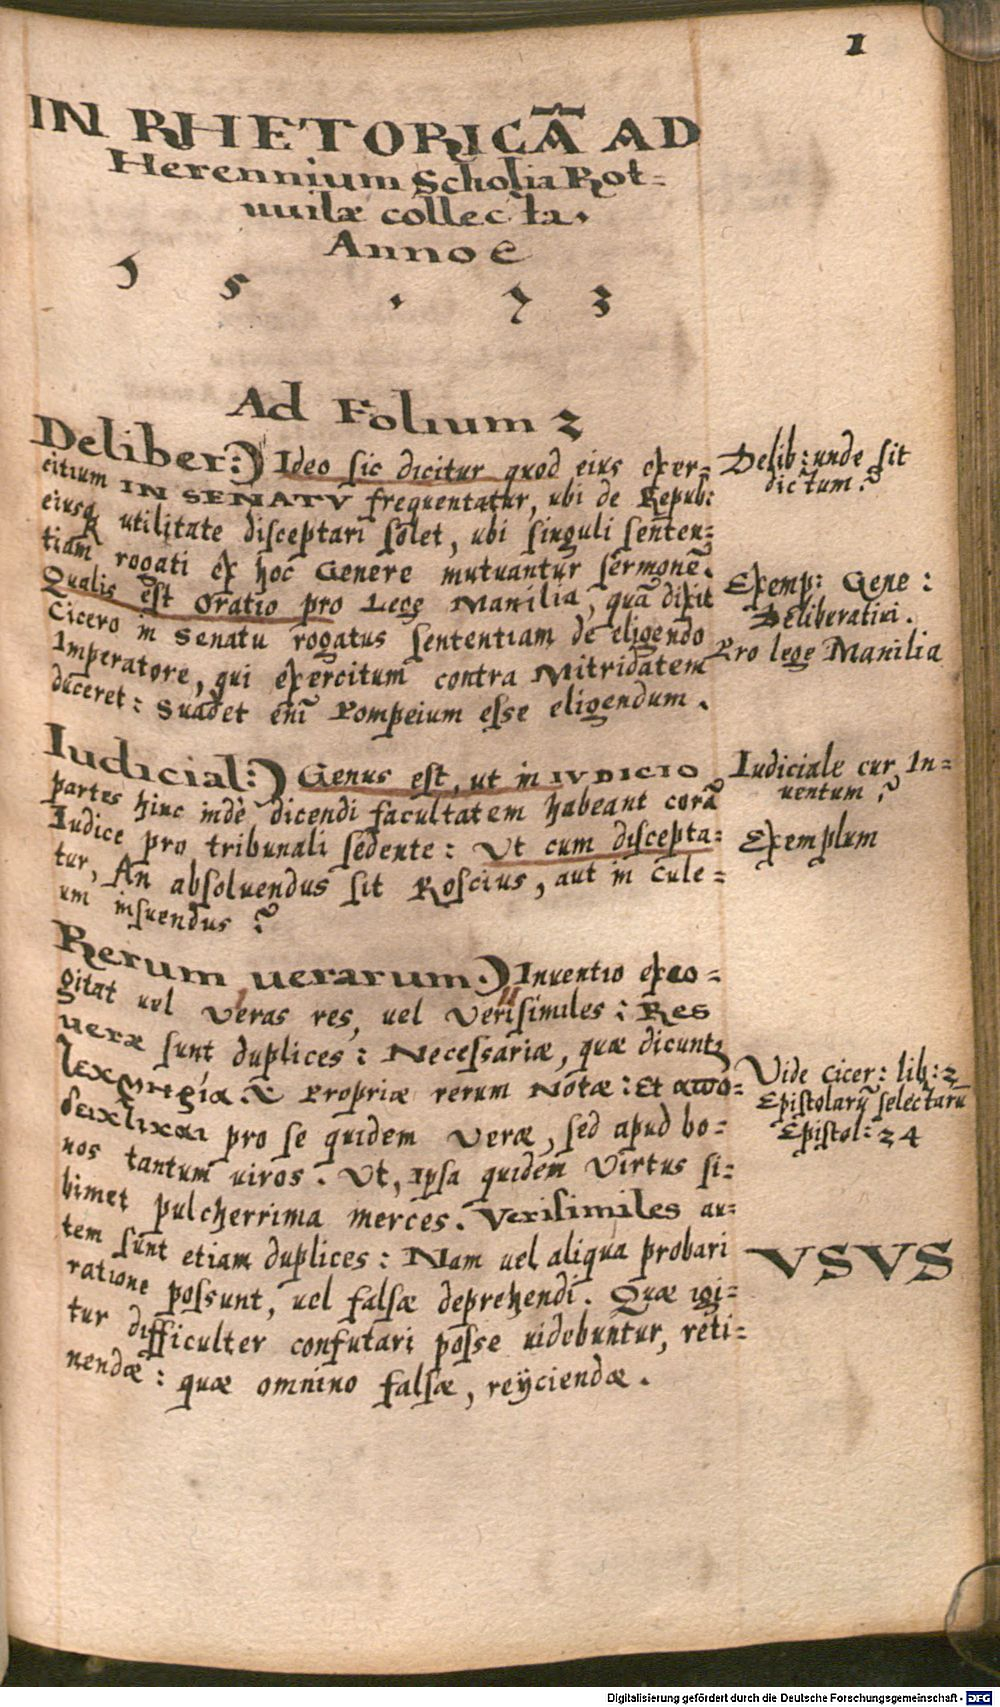 1
IN RHETORICÃ AD
Herennium Scholia Rot-
uuilæ collecta.
Anno e
1 5 . 7 3
Ad Folium 2
Deliber:) Ideo sic dicitur quod eius exer-
citium IN SENATV frequentatur, ubi de Repub:
eiusq utilitate disceptari solet, ubi singuli senten-
tiam rogati ex hoc Genere mutuantur sermonẽ.
Qualis est Oratio pro Lege Manilia, quã dixit
Cicero in Senatu rogatus sententiam de eligendo
Imperatore, qui exercitum contra Mitridatem
duceret: Suadet enĩ Pompeium esse eligendum.
Delib: unde sit
dictum?
Exemp: Gene:
Deliberatiui.
Pro lege Manilia
Iudicial:) Genus est, ut in IVDICIO
partes hinc indè dicendi facultatem habeant corã
Iudice pro tribunali sedente: Ut cum discepta-
tur, An absoluendus sit Roscius, aut in Cule-
um insuendus?
Iudiciale cur In-
uentum?
Exemplum
Rerum uerarum.) Inuentio exco-
gitat uel Veras res, uel Verisimiles: Res
ueræ sunt duplices: Necessariæ, quæ dicunt
Propriæ rerum Notæ: Et απο-
δεικτικαι pro se quidem Veræ, sed apud bo-
nos tantum uiros. Ut, Ipsa quidem Virtus si-
bimet pulcherrima merces. Verisimiles au-
tem sunt etiam duplices: Nam uel aliqua probari
ratione possunt, uel falsæ deprehendi. Quæ igi-
tur difficulter confutari posse uidebuntur, reti-
nendæ: quæ omnino falsæ, reijciendæ.
Vide Cicer: lib: 2
Epistolarũ selectarũ
Epistol: 24
VSVS
Digitalisierung gefördert durch die Deutsche Forschungsgemeinschaft - DFG